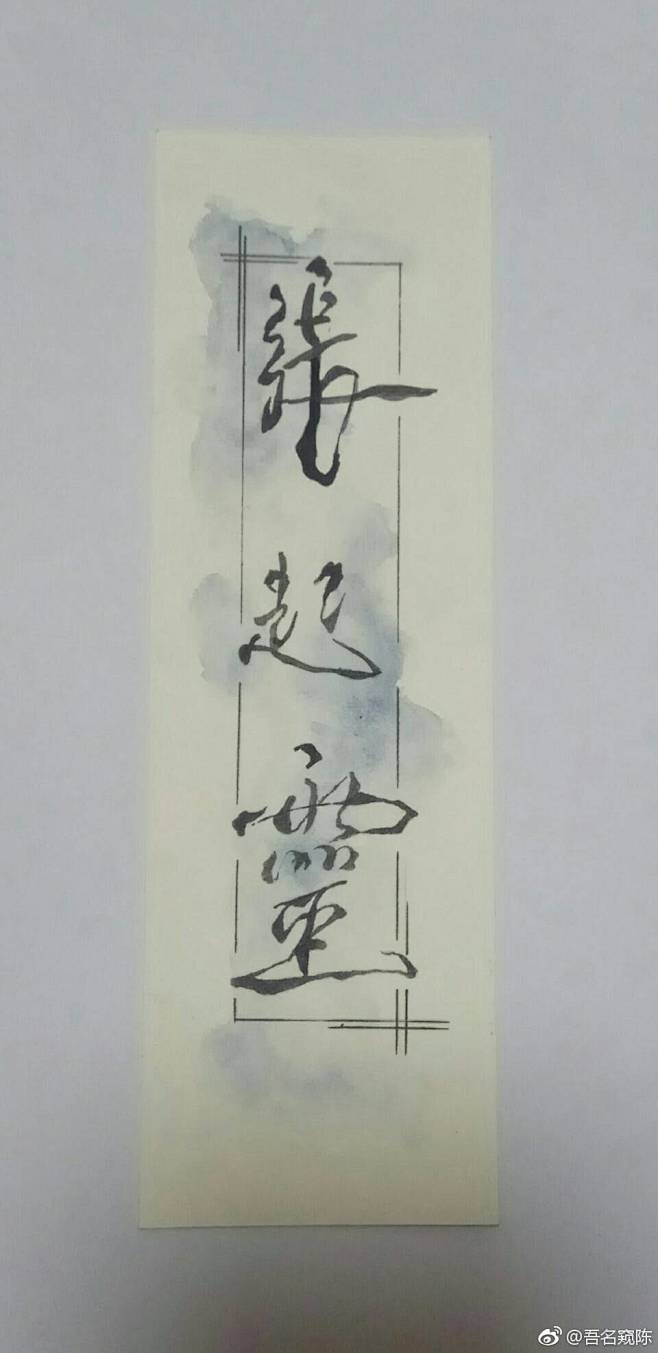 張起靈
@吾名窥陈